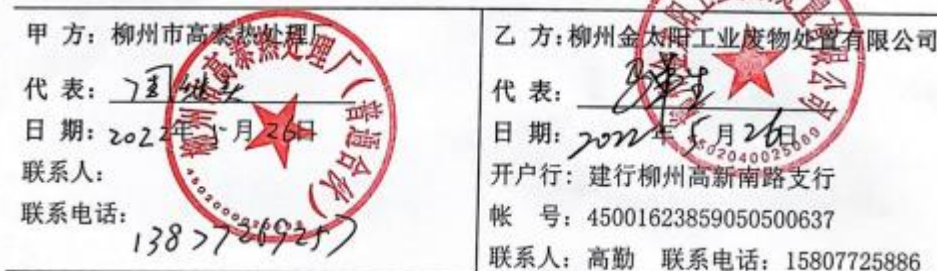 甲 方：柳州市高泰热处理厂
代 表：
日 期：2022年5月26日
联系人：
联系电话：13877269257
柳州市高泰热处理厂（普通合伙）
乙 方：柳州金太阳工业废物处置有限公司
代 表：
日 期：2022年5月26日
开户行：建行柳州高新南路支行
帐 号：45001623859050500637
联系人：高勤 联系电话：15807725886
4502040025069